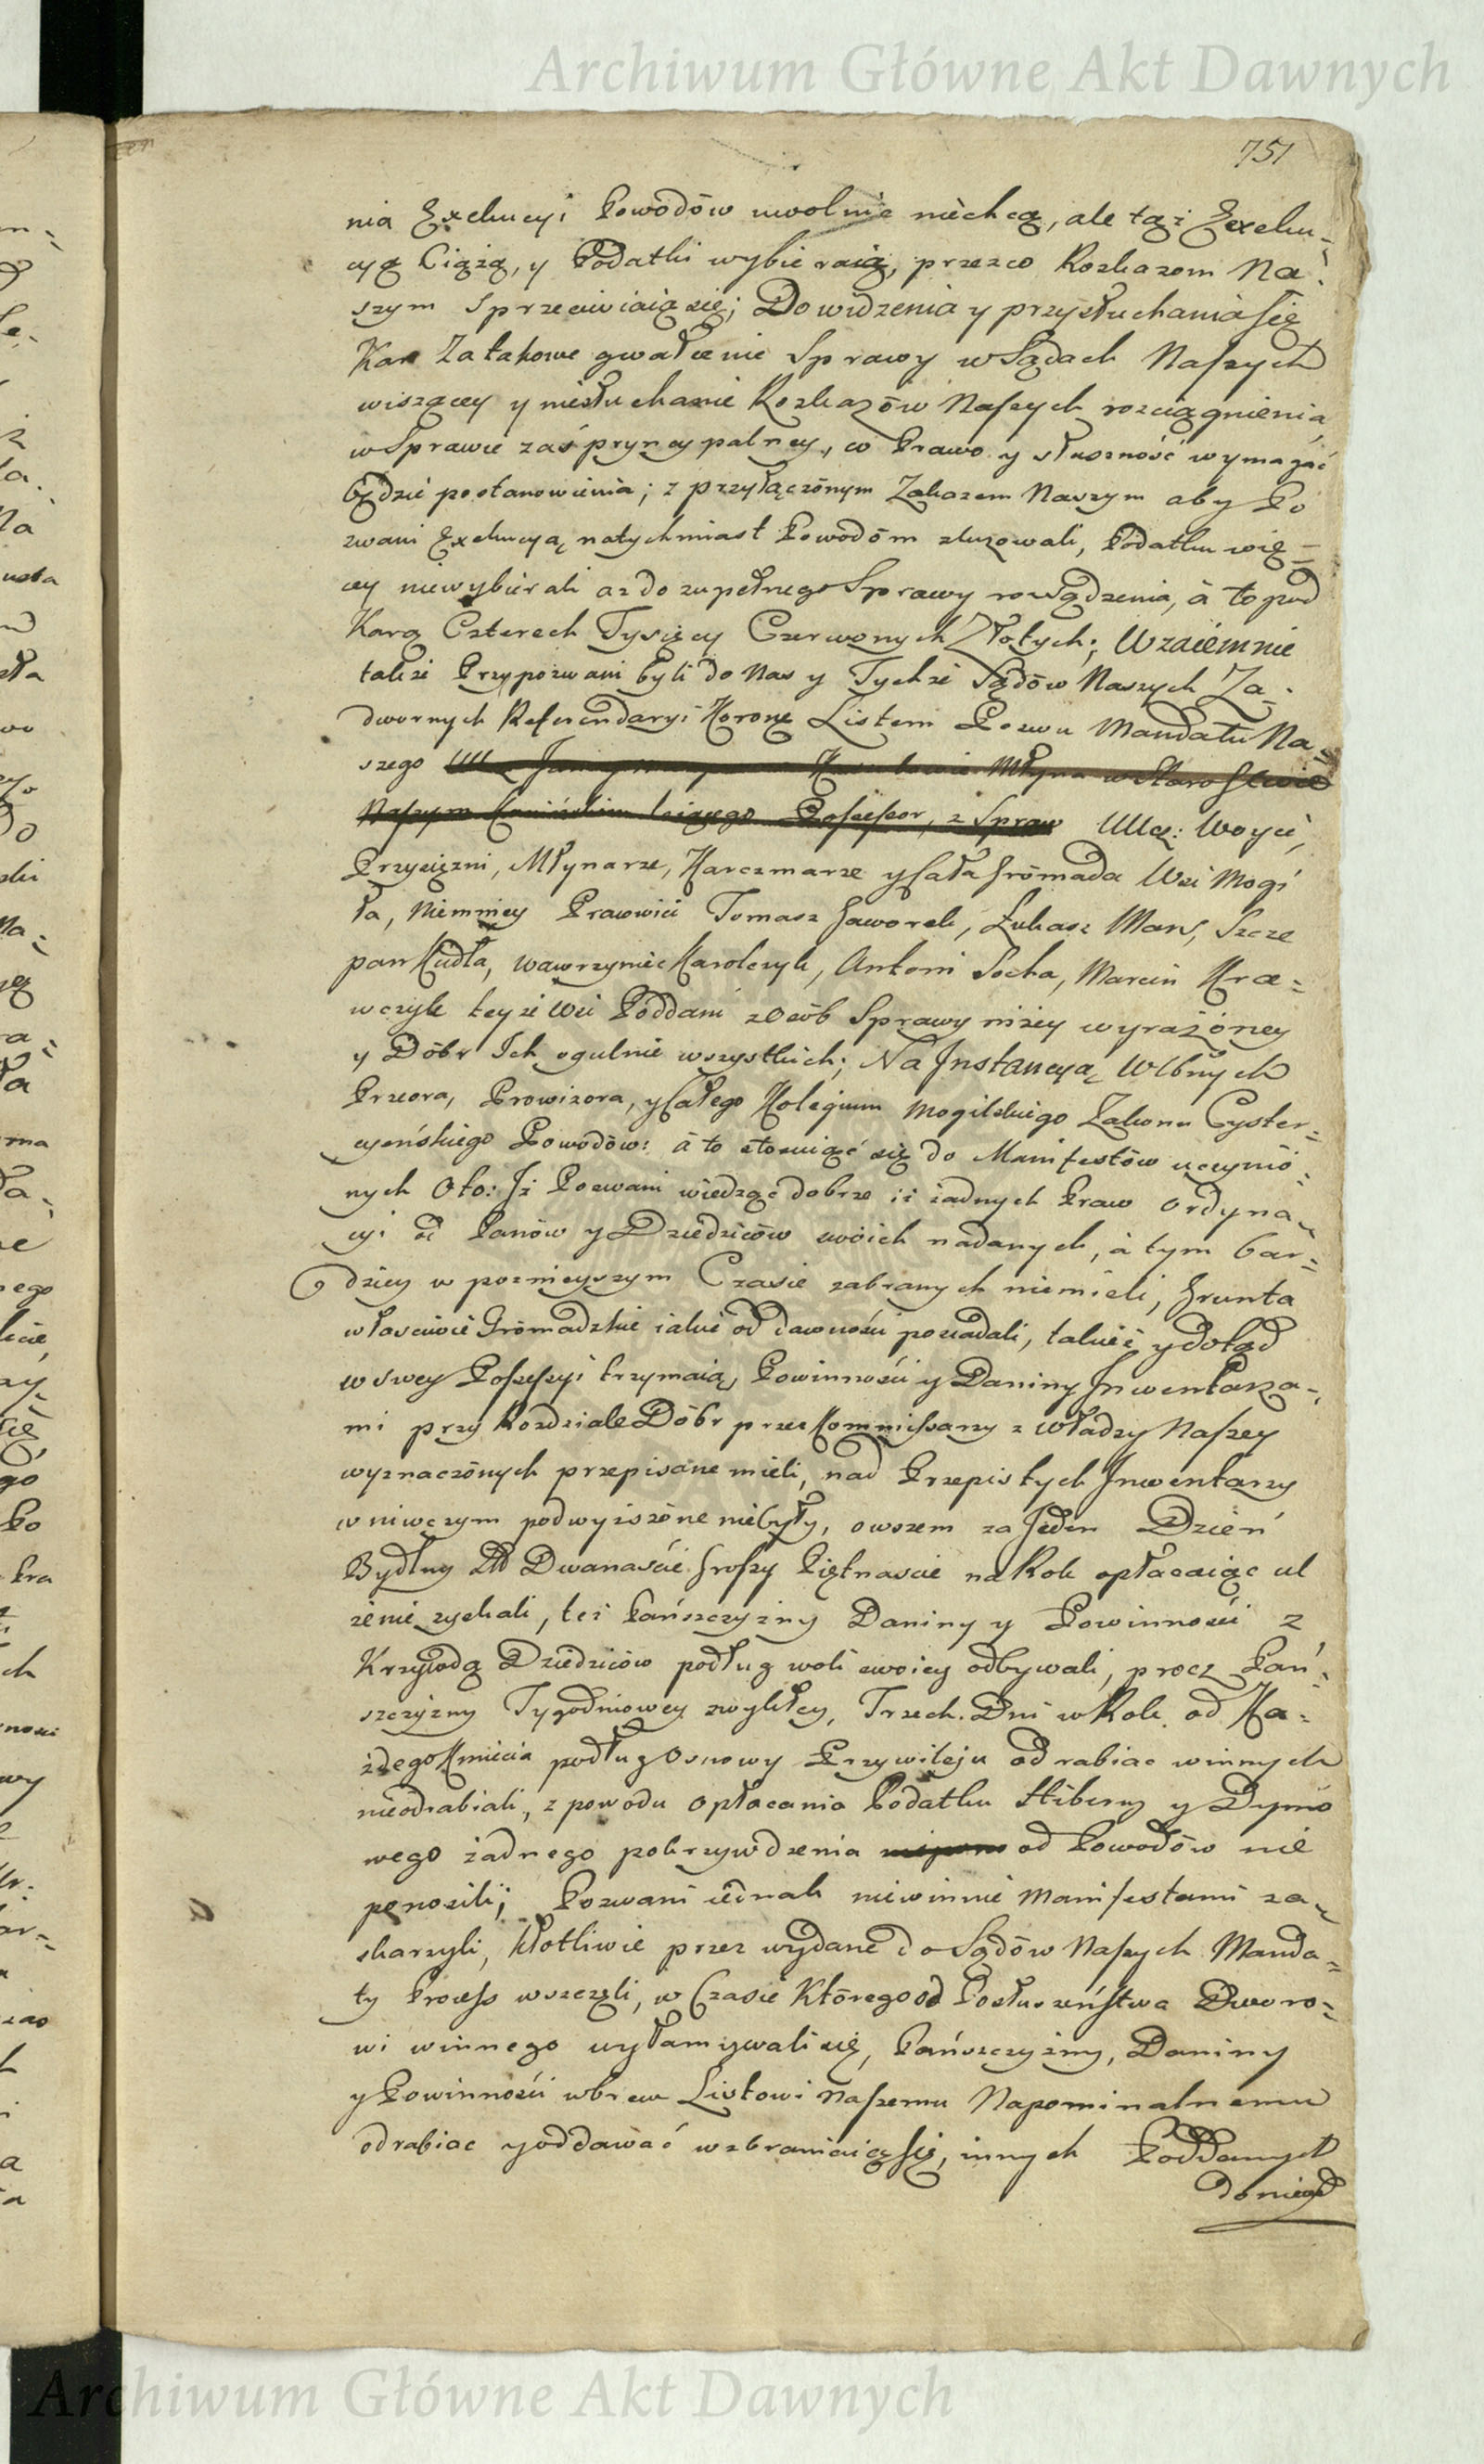 Archiwum Główne Akt Dawnych
751
nia Exekucyi Powodów uwolnić niechcą, ale tąż Exeku=
cyą Ciążą, y Podatki wybieraią, przezco Rozkazom Na=
szym sprzeciwiaią się; Do widzenia y przysłuchania się
Kar za takowe gwałcenie Sprawy w Sądach Naszych
wiszącey y niesłuchanie Rozkazów Naszych rozciągnienia
w Sprawie zaś pryncypalney, co Prawo y słuszność wymagać
będzie postanowienia; z przyłączonym Zakazem Naszym aby Po
zwani Exekucyą natychmiast Powodóm zluzowali, Podatku wię=
cey niewybierali aż do zupełnego Sprawy rozsądzenia, à to pod
Karą Czterech Tysięcy Czerwonych Złotych; Wzaiemnie
także Przypozwani byli do Nas y Tychże Sądów Naszych Za=
dwornych Referendaryi Koronę Listem Pozwu Mandatu Na=
szego Młyna w Starostwie
Naszym leżącego Possessor, z Spraw UUcz: Woyci,
Przysiężni, Młynarze, Karczmarze y Cała Gromada Wsi Mogi
ła, Niemniey Pracowici Tomasz Jaworek, Łukasz Mars, Szcze
pan Kudła, Wawrzyniec Karolczyk, Antoni Socha, Marcin Kra=
wczyk teyże Wsi Poddani z Osób Sprawy niżey wyrażoney
y Dóbr Ich ogulnie wszystkich; Na Instancyą Wlbnych
Przeora, Prowizora, y Całego Kolegium Mogilskiego Zakonu Cyster=
cyeńskiego Powodów: à to stosuiąc się do Manifestów uczynio=
nych Oto: Iż Pozwani wiedząc dobrze iż żadnych Praw Ordyna=
cyi od Panów y Dziedziców swoich nadanych, à tym bar=
dziey w poznieyszym Czasie zabranych niemieli, Grunta
własciwie Gromadzkie iakie od dawności posiadali, takież y dotąd
w swey Possessyi trzymaią, Powinności y Daniny Inwentarza=
mi przy Rozdziale Dóbr przez Kommissarzy z Władzy Naszey
wyznaczonych przepisane mieli, nad Przepis tych Inwentarzy
w niwczym podwyższone niebyły, owszem za Jeden Dzień
Bydlny Zł Dwanaście Groszy Piętnascie na Rok opłacaiąc ul
żenie zyskali, też Pańszczyzny Daniny y Powinności z
Krzywdą Dziedziców podług woli swoiey odbywali, procz Pań=
szczyzny Tygodniowey zwykłey, Trzech Dni w Rok od Ka=
żdego Kmiecia podług Osnowy Przywileju odrabiac winnych
nieodrabiali, z powodu opłacania Podatku Hiberny y Dymo
wego żadnego pokrzywdzenia od Powodów nie
ponosili; Pozwani iednak niewinnie Manifestami za=
skarzyli, kłotliwie przez wydane do Sądów Naszych Manda=
ty Process wszczęli, w Czasie Którego od Posłuszeństwa Dworo=
wi winnego wyłamywali się, Pańszczyzny, Daniny
y Powinności wbrew Listowi Naszemu Napominalnemu
odrabiac y oddawać wzbraniaią się, innych Poddanych
do niego
Archiwum Główne Akt Dawnych